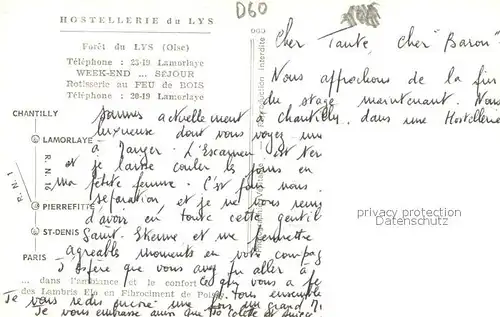 HOSTELLERIE du LYS
Forêt du LYS (Oise)
Téléphone : 23-19 Lamorlaye
WEEK-END ... SEJOUR
Rotisserie au FEU de BOIS
Téléphone : 20-19 Lamorlaye
D60
Cher Tante, cher "Baron"
Nous approchons de la fin
du stage maintenant. Nous
sommes actuellement à Chantilly, dans une Hostellerie
luxueuse dont vous voyez une
à manger. L'Examen est
et je laisse couler les jours en
ma petite femme. C'est pour nous
séparation, et je ne vous
d'avoir en toute cette gentil
Saint-Etienne et me permettre
agréables moments en votre compag
J'espère que vous avez pu aller à
ce qui vous a fe
tous ensemble
Je vous redis encore une fois un grand
Je vous embrasse ainsi que
CHANTILLY
LAMORLAYE
R.N. 16
R.N. 1
PIERREFITTE
ST-DENIS
PARIS
... dans l'ambiance et le confort
des Lambris Elo en Fibrociment de Poissy
Reproduction interdite
privacy protection